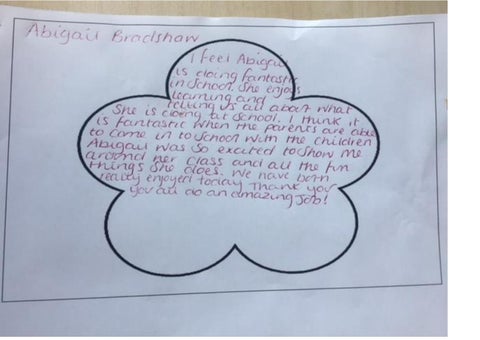 Abigail Bradshaw
I Feel Abigail
is doing fantastic
in School. She enjoys
learning and
telling us all about what
She is doing at School. I think it
is fantastic when the parents are able
to come in to School with the children
Abigail was so excited to show me
around her class and all the fun
things she does. We have both
really enjoyed today Thank you
you all do an amazing Job!